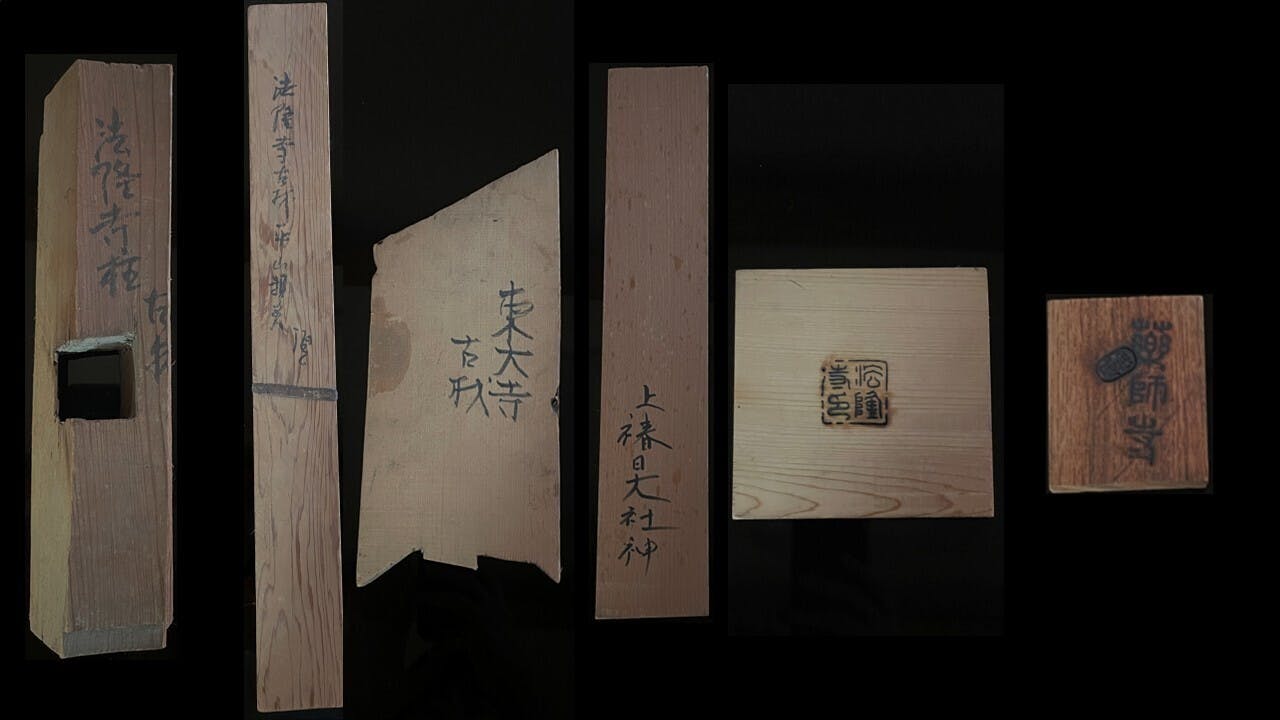 法隆寺柱
古材
法隆寺古材
東大寺
古材
上
春日大社神
法隆
寺印
薬師寺